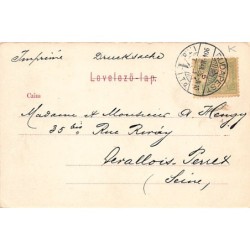 Imprimé Drucksache
Levelező-lap.
Czim:
Madame et Monsieur A. Hengy
35 bis Rue Rivay
Levallois-Perret
(Seine)
K